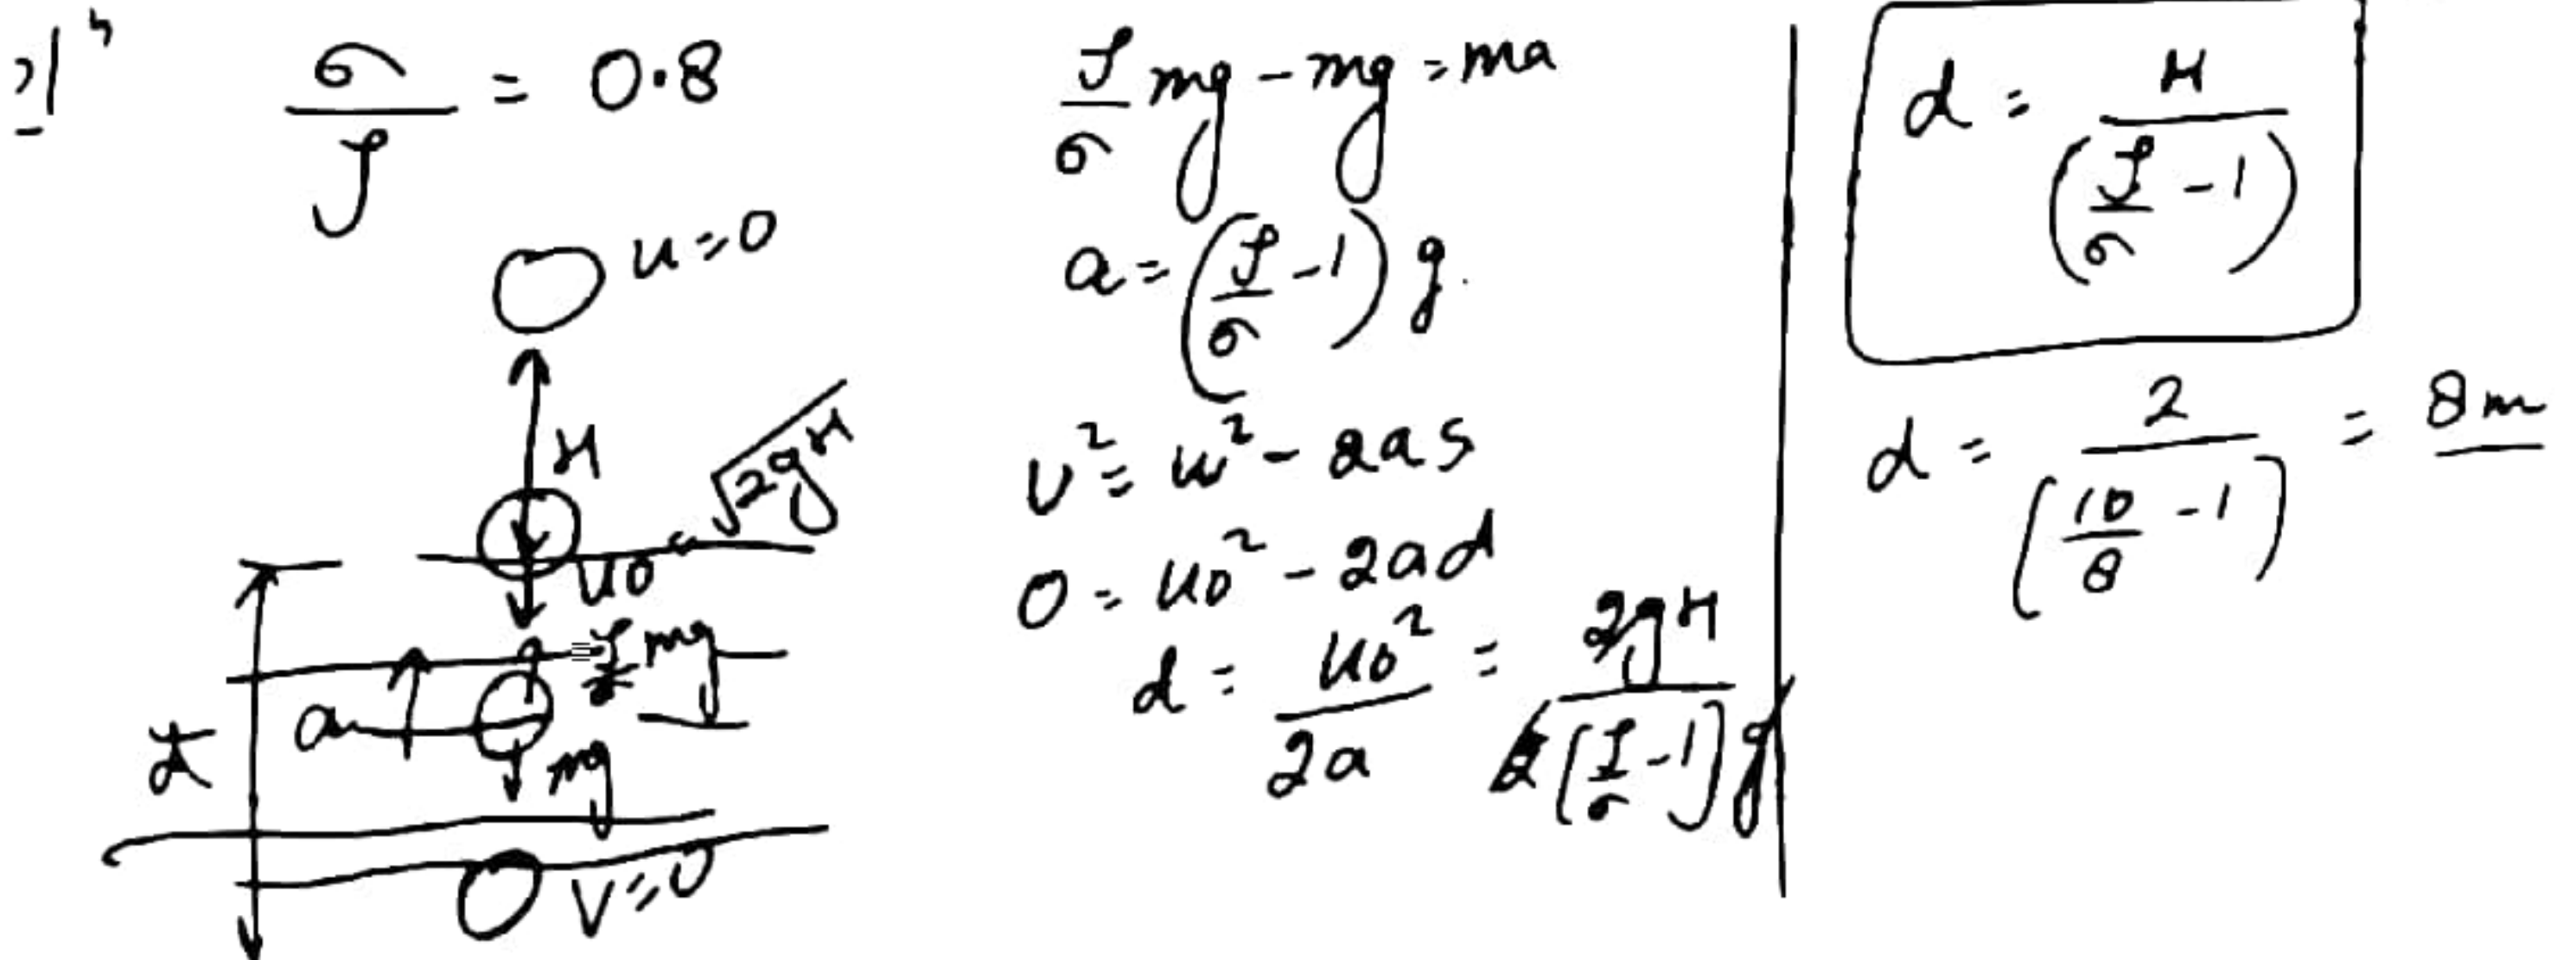 21 4
σ/ρ = 0.8
u=0
H
√2gH
u0
ρ/σ mg
a
mg
d
V=0
ρ/σ mg - mg = ma
a = (ρ/σ - 1) g.
v² = u² - 2as
0 = u0² - 2ad
d = u0²/2a = 2gH/2[ρ/σ - 1]g
d = H/(ρ/σ - 1)
d = 2/[10/8 - 1] = 8m